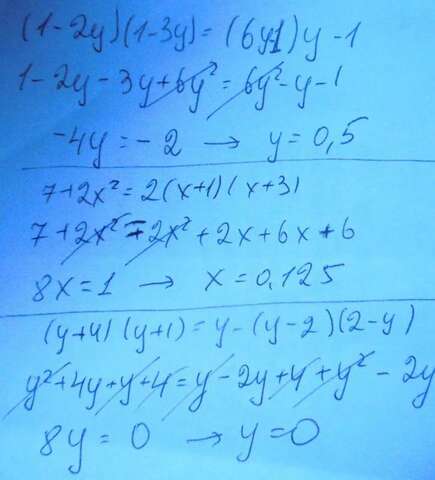 (1-2y)(1-3y)=(6y-1)y-1
1-2y-3y+6y²=6y²-y-1
-4y=-2 → y=0,5
7+2x²=2(x+1)(x+3)
7+2x²=2x²+2x+6x+6
8x=1 → x=0,125
(y+4)(y+1)=y-(y-2)(2-y)
y²+4y+y+4=y-2y+4+y²-2y
8y=0 → y=0